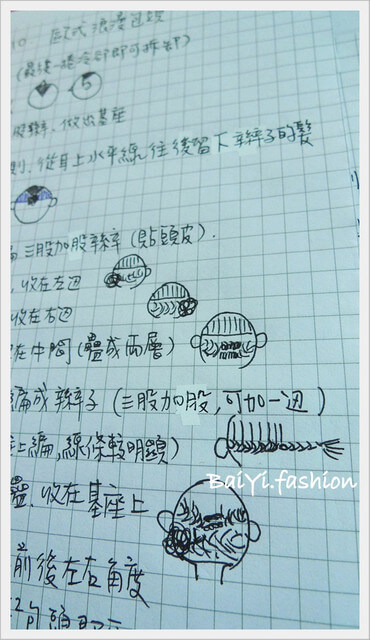 10 歐式浪漫包頭
(最後一捲冷卻即可拆卸)
5
股辮, 做出基座
則, 從耳上水平線往後留下辛辮子的髮
三股加股辮 (貼頭皮).
, 收在左边
收在右边
在中間 (疊成兩層)
編成辮子 (三股加股, 可加一边)
上編, 線條較明顯)
疊, 收在基座上
BaiYi.fashion
前後左右角度